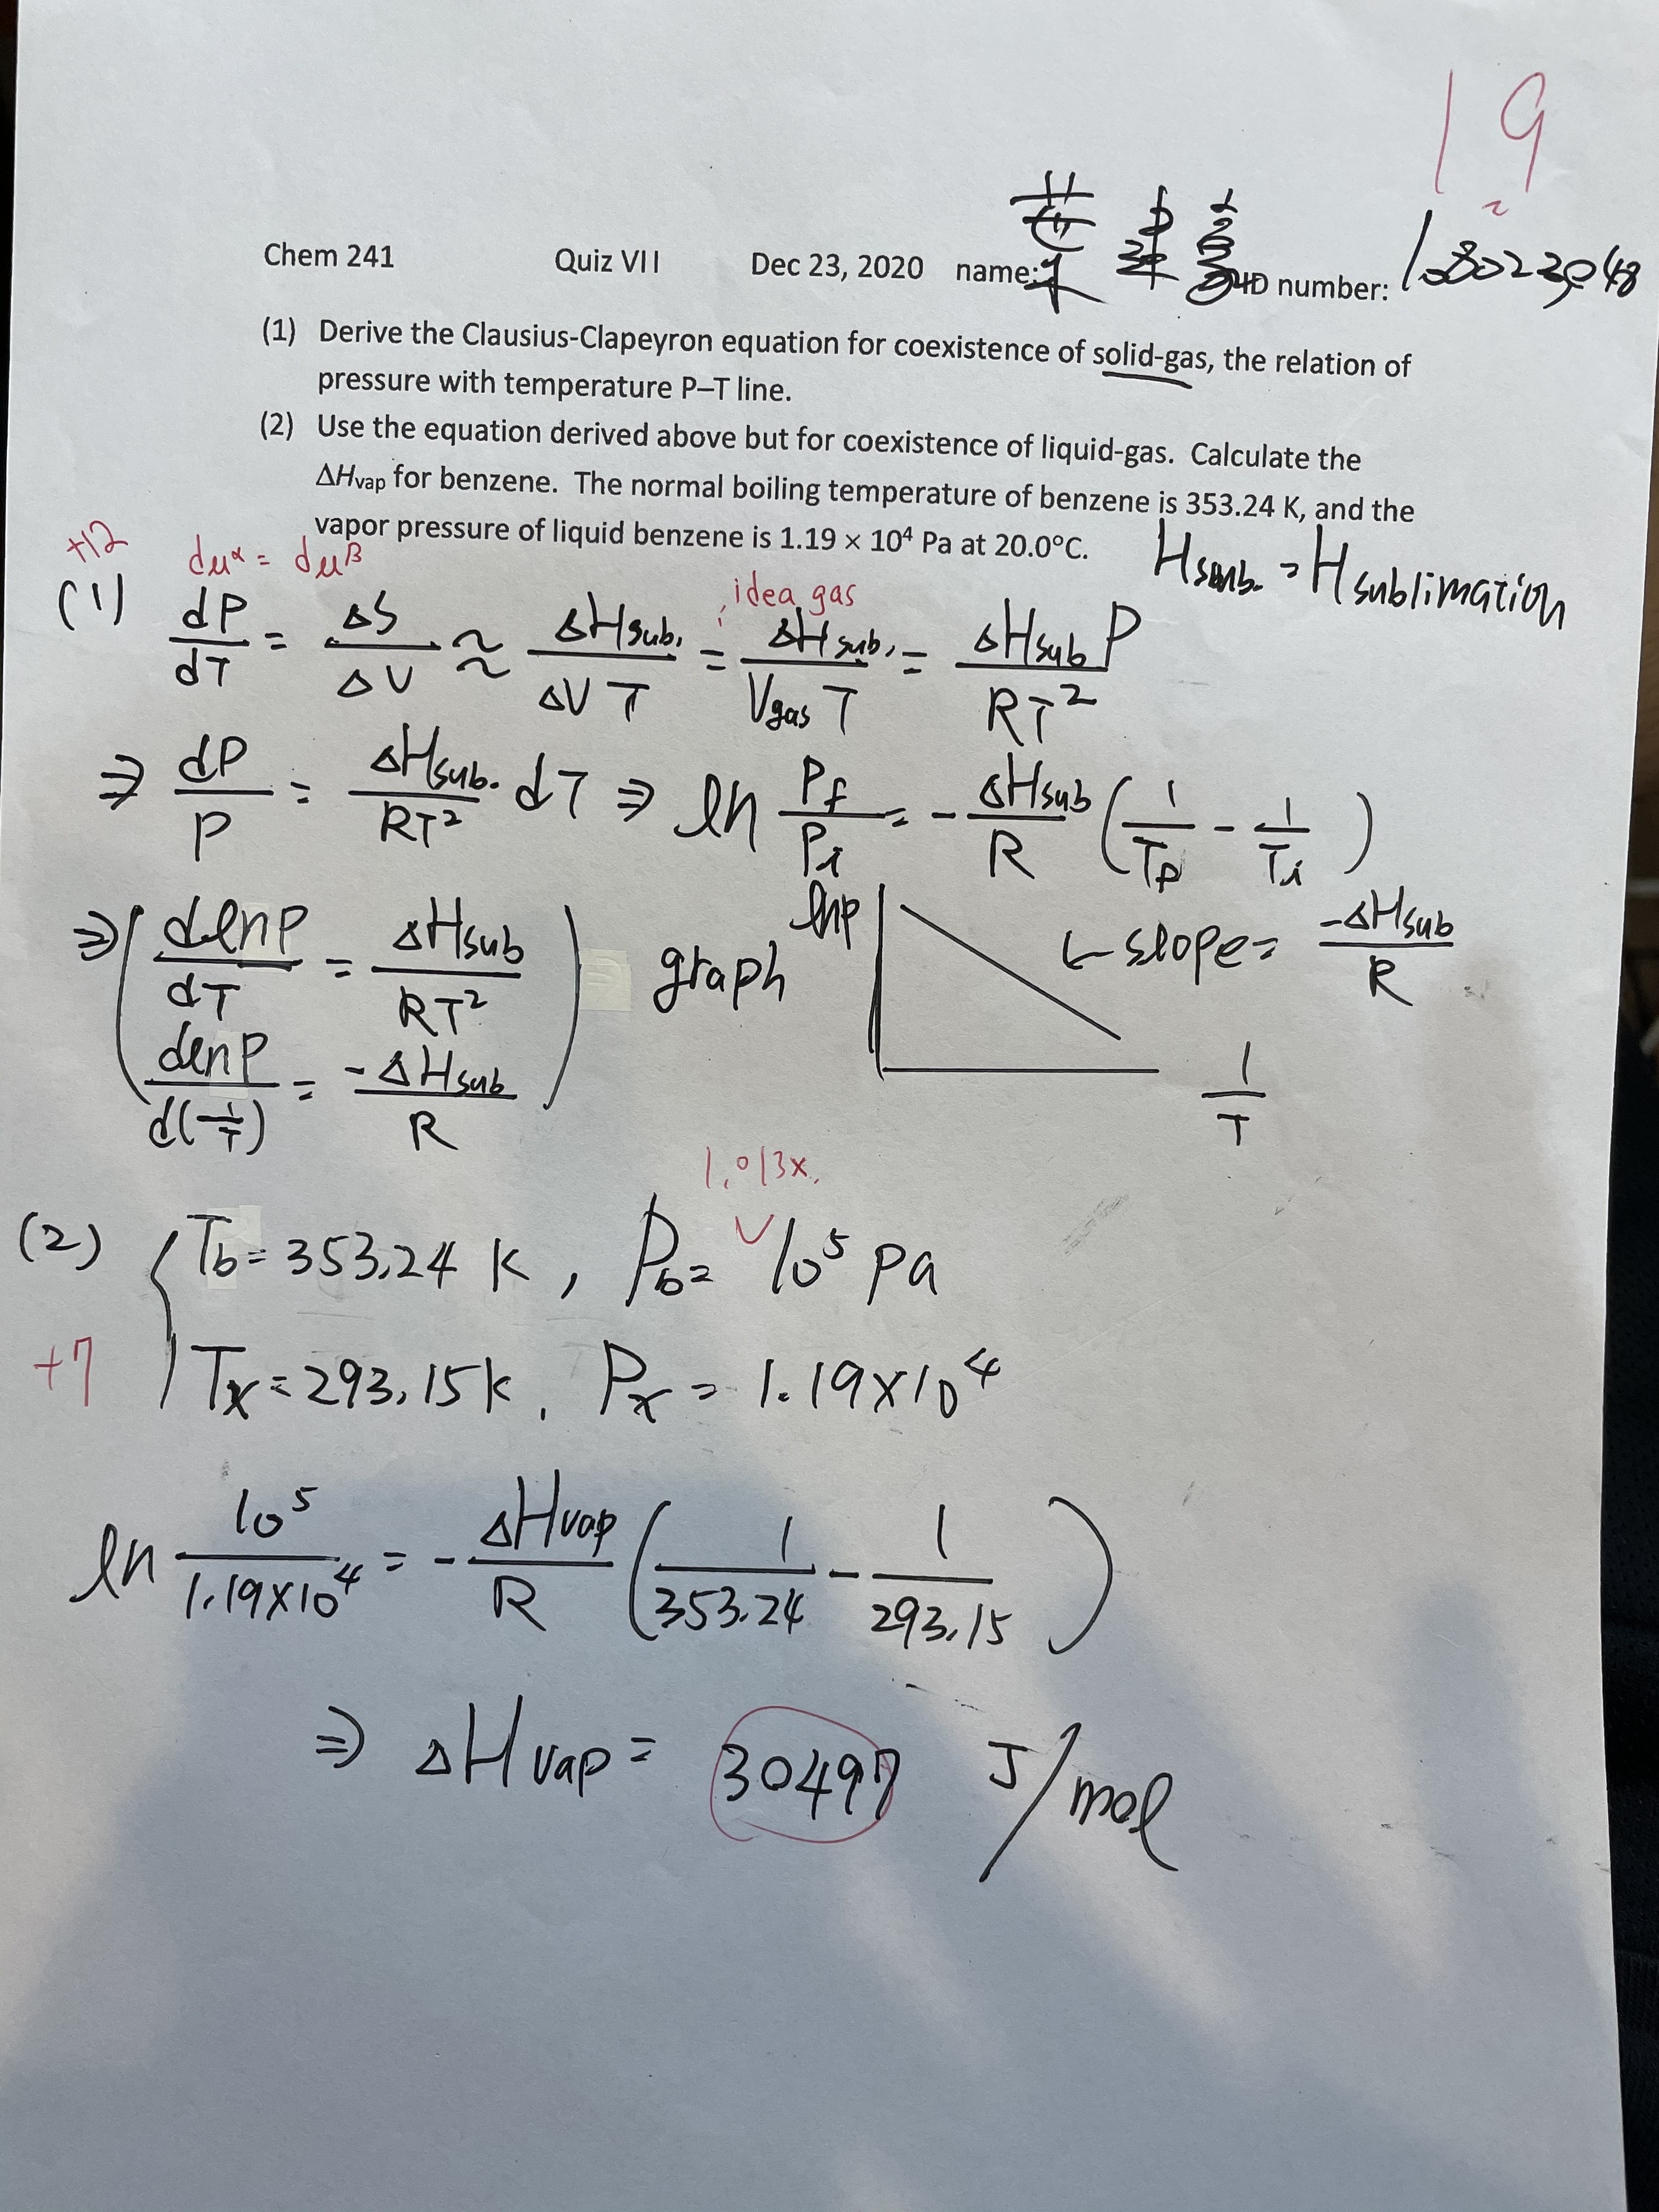 19
Chem 241 Quiz VII Dec 23, 2020 name: 黃聖意 ID number: 108023048
(1) Derive the Clausius-Clapeyron equation for coexistence of solid-gas, the relation of
pressure with temperature P–T line.
(2) Use the equation derived above but for coexistence of liquid-gas. Calculate the
ΔHvap for benzene. The normal boiling temperature of benzene is 353.24 K, and the
vapor pressure of liquid benzene is 1.19 × 10⁴ Pa at 20.0°C.
Hsub. = Hsublimation
+12 dμ^α = dμ^β
idea gas
(1) dP/dT = ΔS/ΔV ≈ ΔHsub./ΔV T = ΔHsub./Vgas T = ΔHsub P/RT²
⇒ dP/P = ΔHsub./RT² dT ⇒ ln Pf/Pi = - ΔHsub/R (1/Tf - 1/Ti)
⇒ (dlnP/dT = ΔHsub/RT²
dlnP/d(1/T) = -ΔHsub/R)
graph lnp ← slope = -ΔHsub/R
1/T
1.013x
(2) Tb = 353.24 K, Pb = 10⁵ pa
+7 Tx = 293.15k, Px = 1.19×10⁴
ln 10⁵/1.19×10⁴ = - ΔHvap/R (1/353.24 - 1/293.15)
⇒ ΔHvap = 30497 J/mol